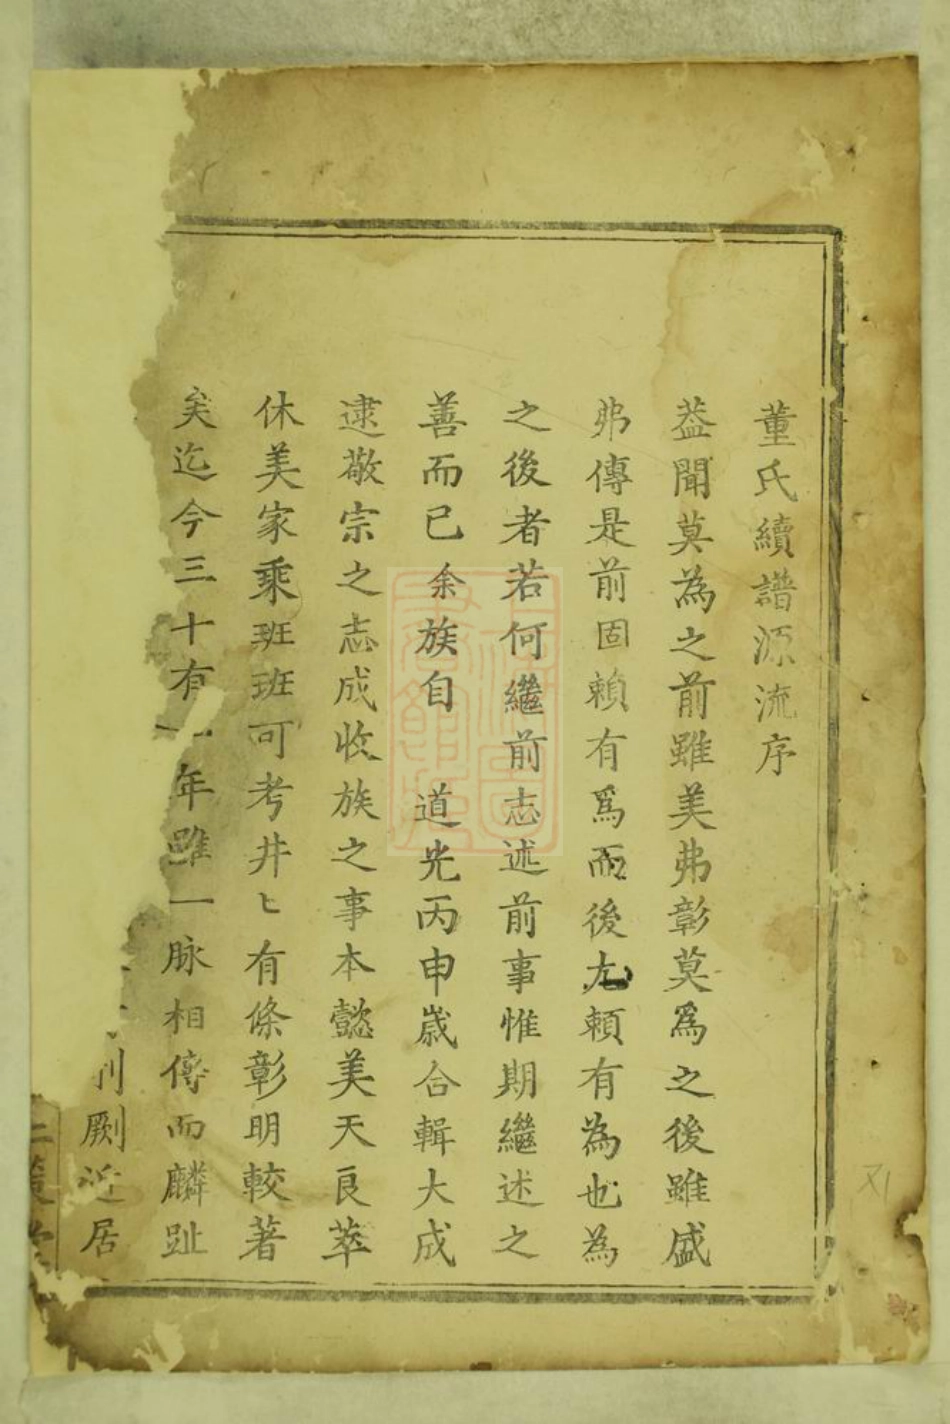 董氏續譜源流序
葢聞莫為之前雖美弗彰莫爲之後雖盛
弗傳是前固賴有爲而後尢賴有為也為
之後者若何繼前志述前事惟期繼述之
善而已余族自 道光丙申嵗合輯大成
逮敬宗之志成收族之事本懿美天良萃
休美家乘班班可考井匕有條彰明較著
矣迄今三十有年雖一脉相傳而麟趾
劂近居